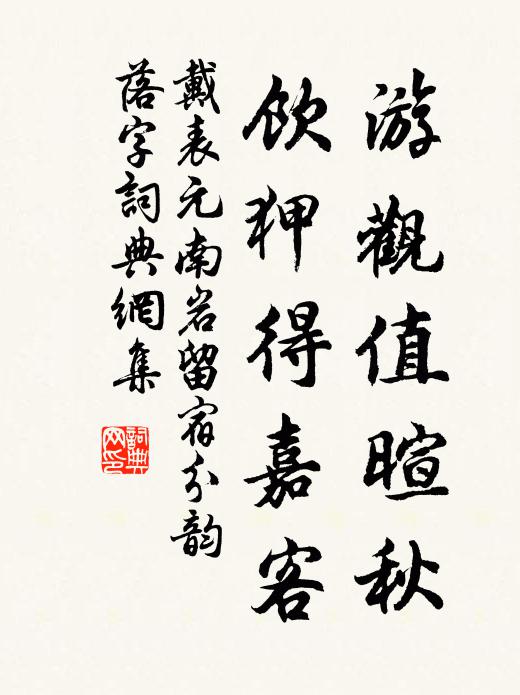 游觀值暄秋
飲狎得嘉客
戴表元南岩留宿分韵
落字詞典網集
詞典
网印